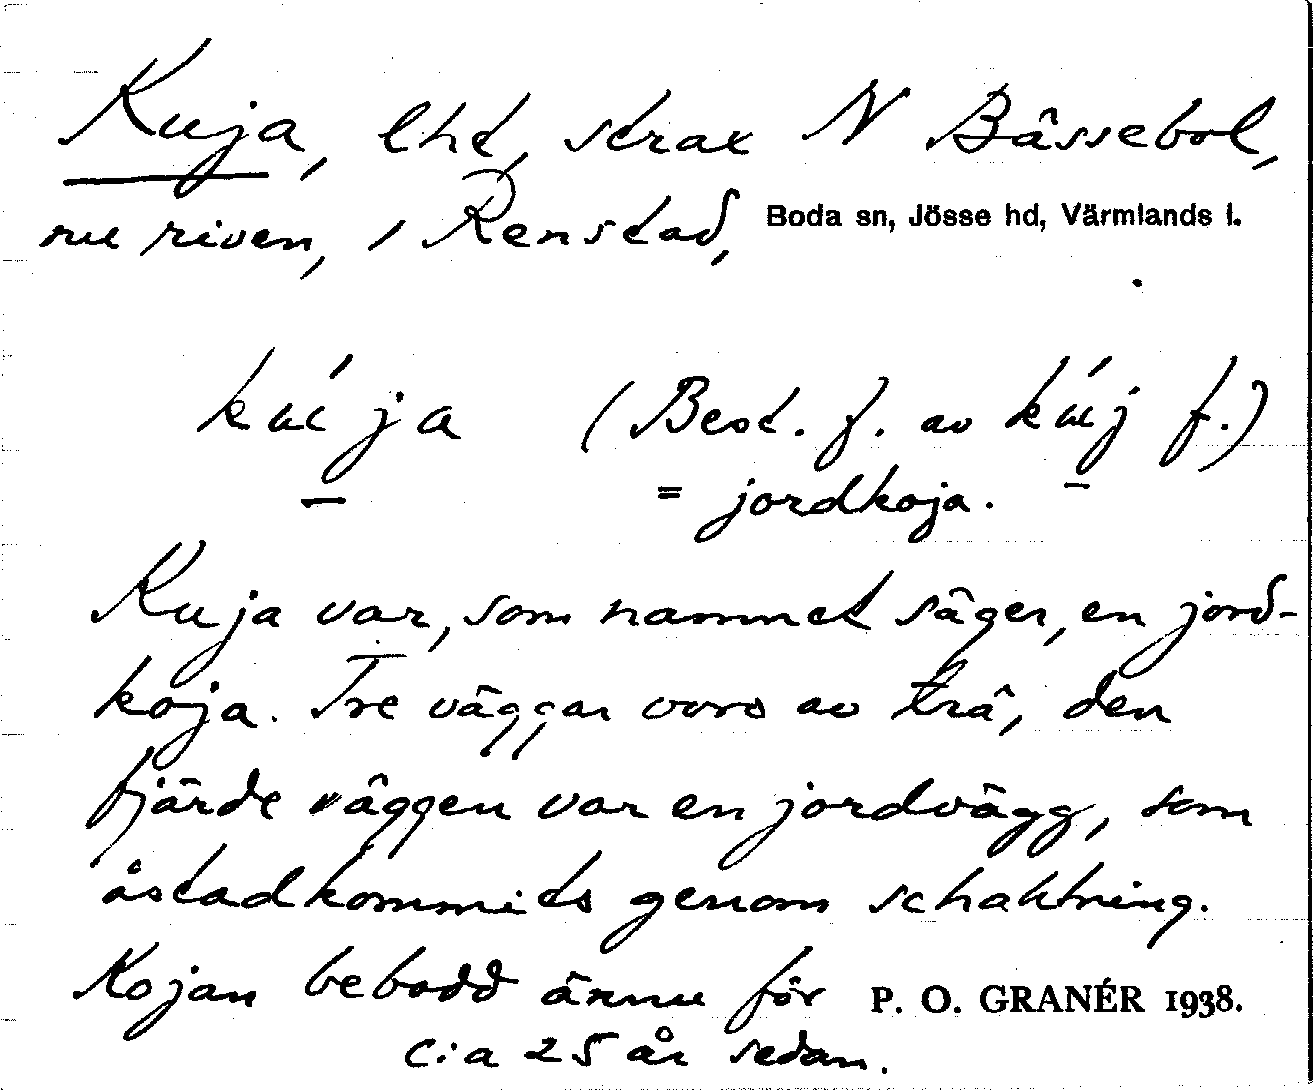 Kuja, lht, strax N Bässebol,
nu riven, i Renstad, Boda sn, Jösse hd, Värmlands l.
kúja (Best. f. av kúj f.)
= jordkoja.
Kuja var, som namnet säger, en jord-
koja. Tre väggar voro av trä, den
fjärde väggen var en jordvägg, som
åstadkommits genom schaktning.
Kojan bebodd ännu för P. O. GRANÉR 1938.
c:a 25 år sedan.